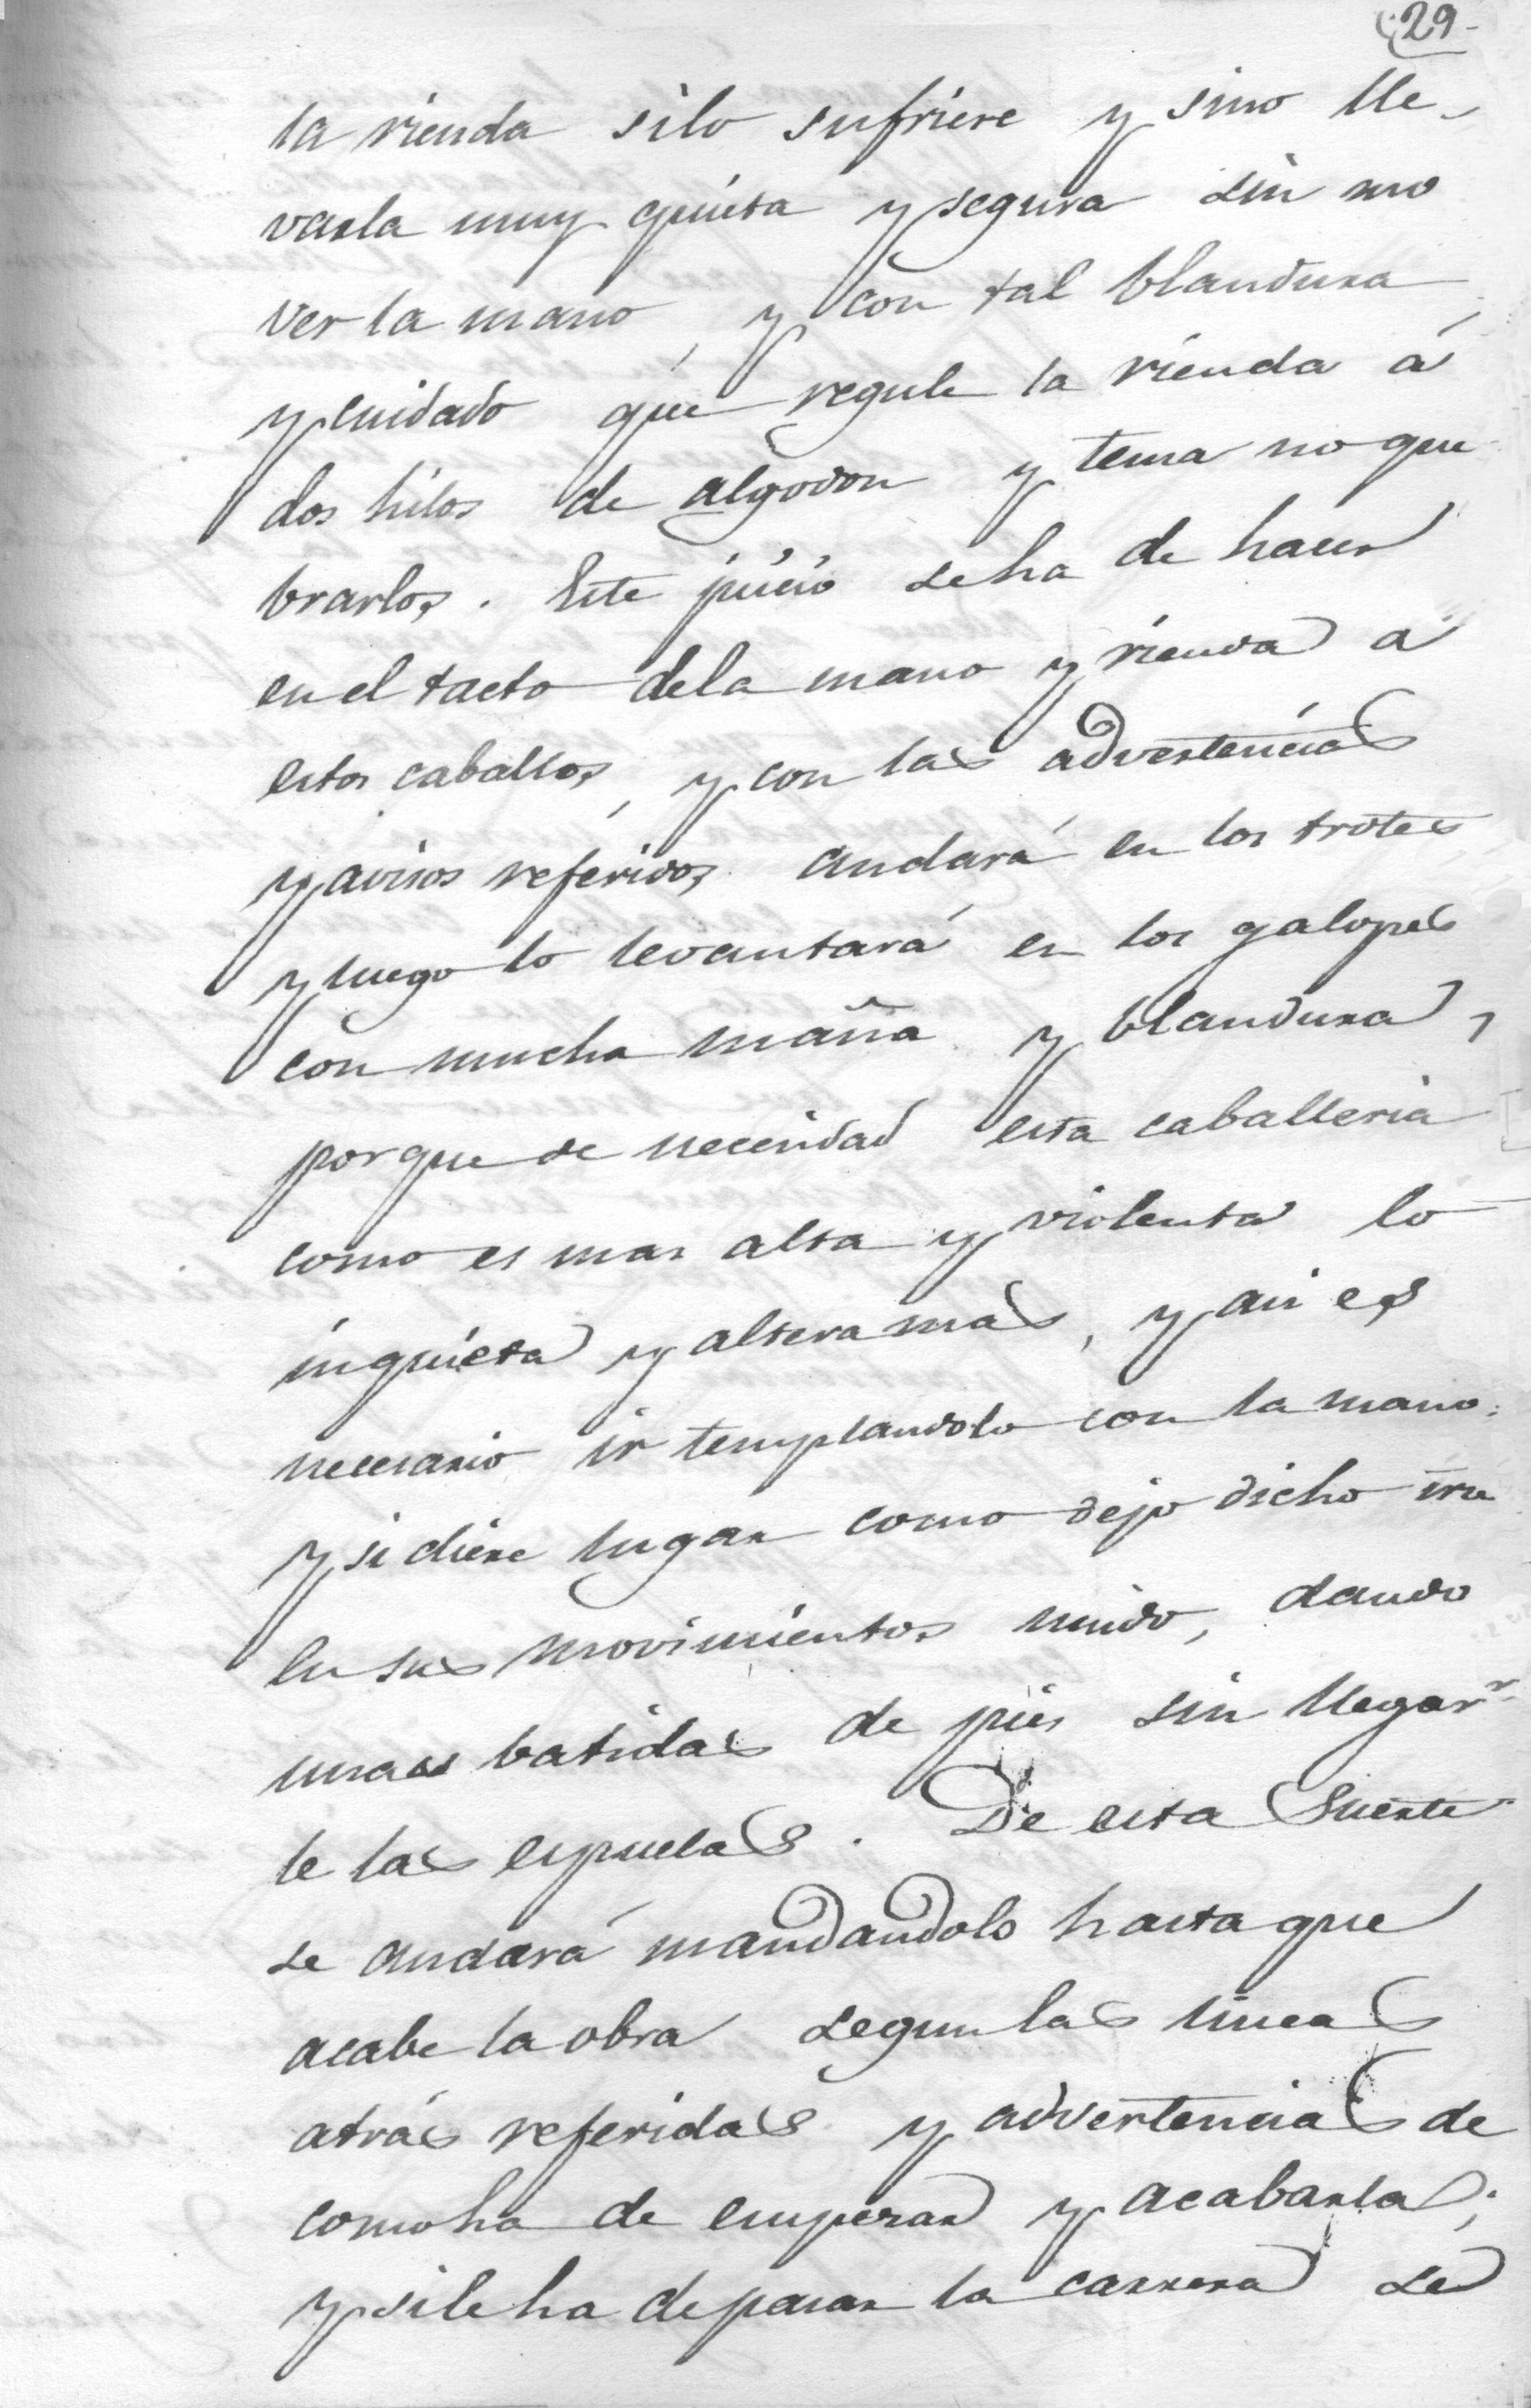 29-
la rienda silo sufriere y sino lle-
varla muy quieta y segura sin mo
ver la mano, y con tal blandura
y cuidado que regule la rienda á
dos hilos de algodon y tema no que
brarlos. Este juicio se ha de hacer
en el tacto dela mano y rienda a
estos caballos, y con las advertencias
y avisos referidos andará en los trotes
y luego lo levantará en los galopes
con mucha maña y blandura,
porque de necesidad esta caballeria
como es mas alta y violenta lo
inquieta y altera mas, y asi es
necesario ir templandolo con la mano:
y si diere lugar como dejo dicho irse
en sus movimientos unido, dando
unas batidas de pies sin llegar
le las espuelas. De esta Suerte
se andará mandandolo hasta que
acabe la obra segun las lineas
atrás referidas y advertencias de
como ha de empezar y acabarla;
y si le ha de pasar la carrera se